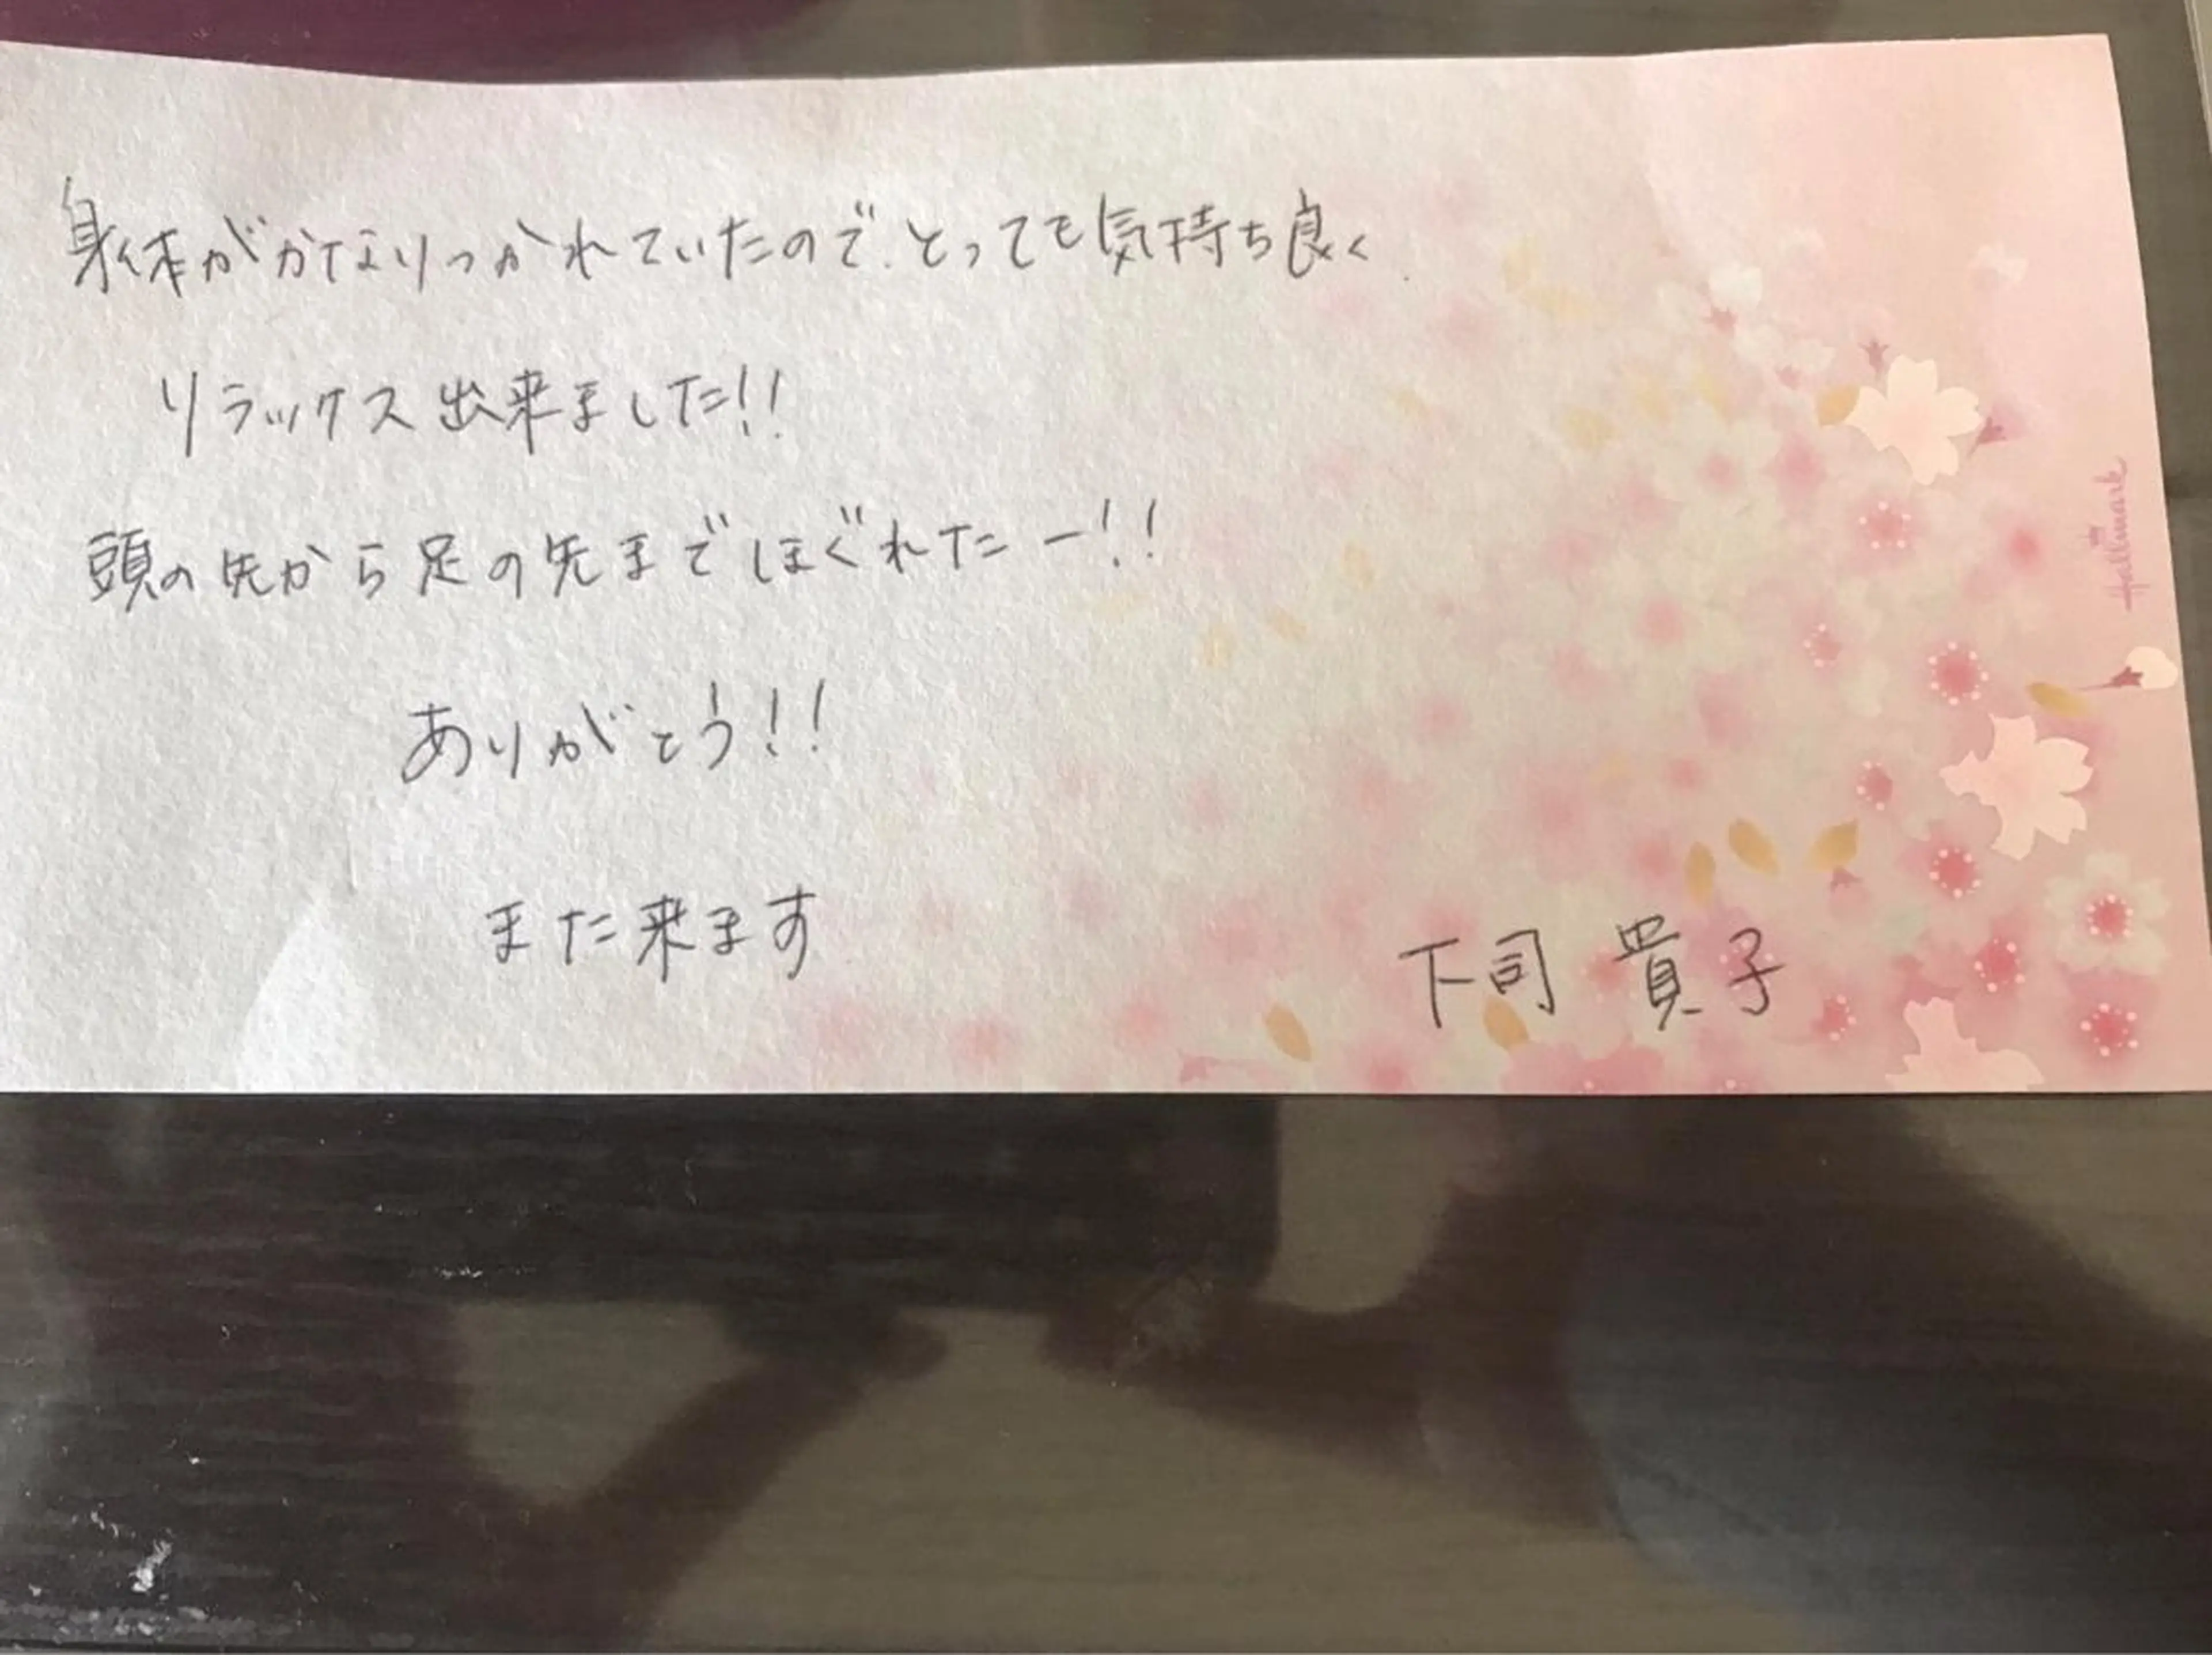 身体がかなりつかれていたので、とっても気持ち良く
リラックス出来ました!!
頭の先から足の先までほぐれたー!!
ありがとう!!
また来ます
下司 貴子
Hallmark